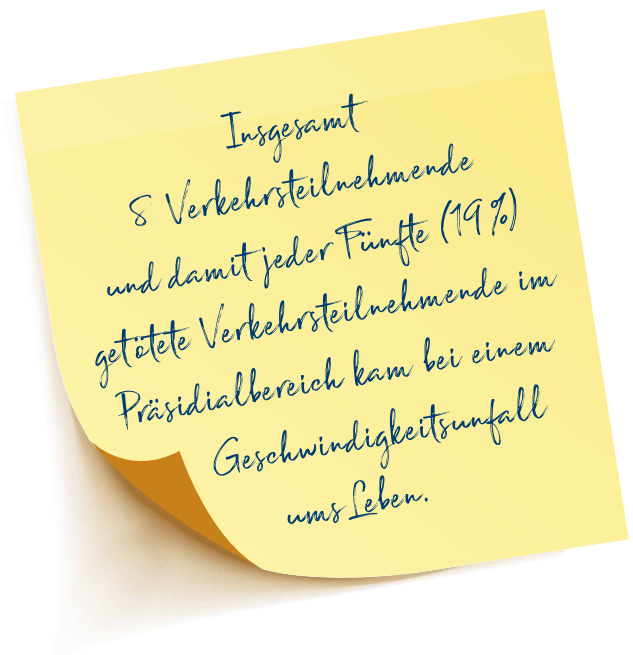 Insgesamt
8 Verkehrsteilnehmende
und damit jeder Fünfte (19 %)
getötete Verkehrsteilnehmende im
Präsidialbereich kam bei einem
Geschwindigkeitsunfall
ums Leben.